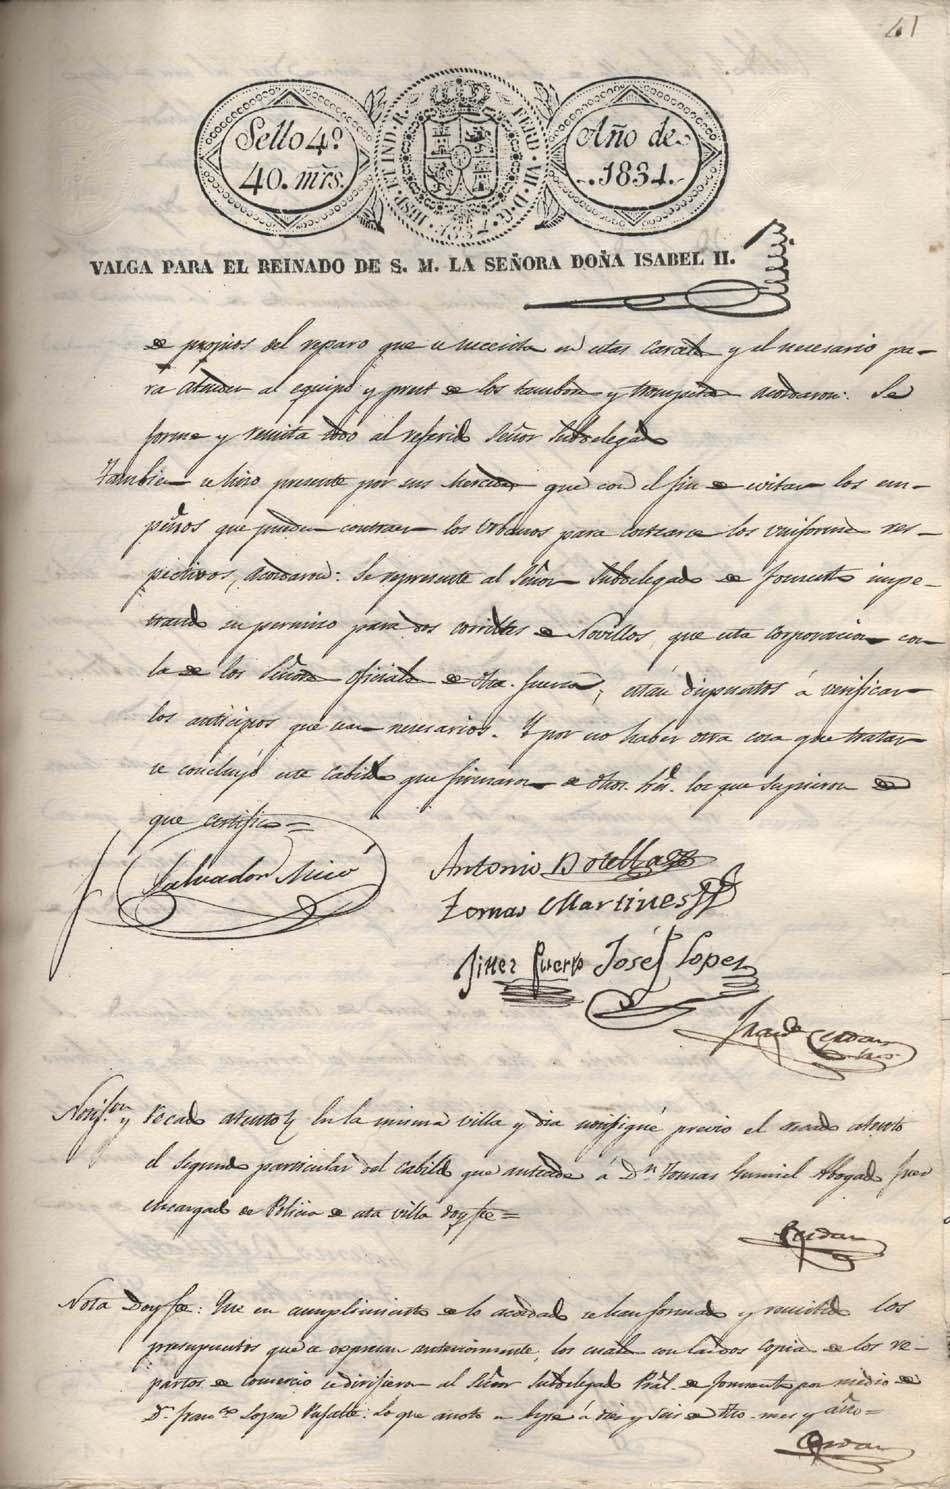 41
Sello 4º.
40. mrs.
HISP. ET IND. R. FERD. VII. D. G. 1834.
Año de
1834.
VALGA PARA EL REINADO DE S. M. LA SEÑORA DOÑA ISABEL II.
de propios del reparo que se necesita en estas Carceles y el necesario pa-
ra atender al equipo y prest de los tambores y trompeta acordaron: Se
forme y remita todo al referido Señor Subdelegado
Tambien se hizo presente por sus Mercedes que con el fin de evitar los em-
peños que pueden contraer los Urbanos para costearse los uniformes res-
pectivos, acordaron: Se represente al Señor Subdelegado de fomento impe-
trando su permiso para dos corridas de Novillos, que esta corporacion con
la de los Señores oficiales de dha. fuerza, están dispuestos á verificar
los anticipos que sean necesarios. Y por no haber otra cosa que tratar
se concluyó este Cabildo que firmaron de dhos. Sres. los que supieron de
que certifico=
Salvador Micó
Antonio Botella
Tomas Martines
Gines Puerto José Lopez
Cerdan
Notifon. y recado atento En la misma villa y dia notifiqué previo el recado atento
el segundo particular del Cabildo que antecede á Dn. Tomas Gumiel Abogado
encargado de Policia de esta villa doy fee=
Cerdan
Nota Doy fee: Que en cumplimiento de lo acordado se han formado y remitido los
presupuestos que se espresan anteriormente, los cuales con las dos copias de los re-
partos de comercio se dirifieron al Señor Subdelegado Pral. de fomento por medio de
Dn. Franco. Lopez : lo que anoto en á diez y seis de dho. mes y año=
Cerdan